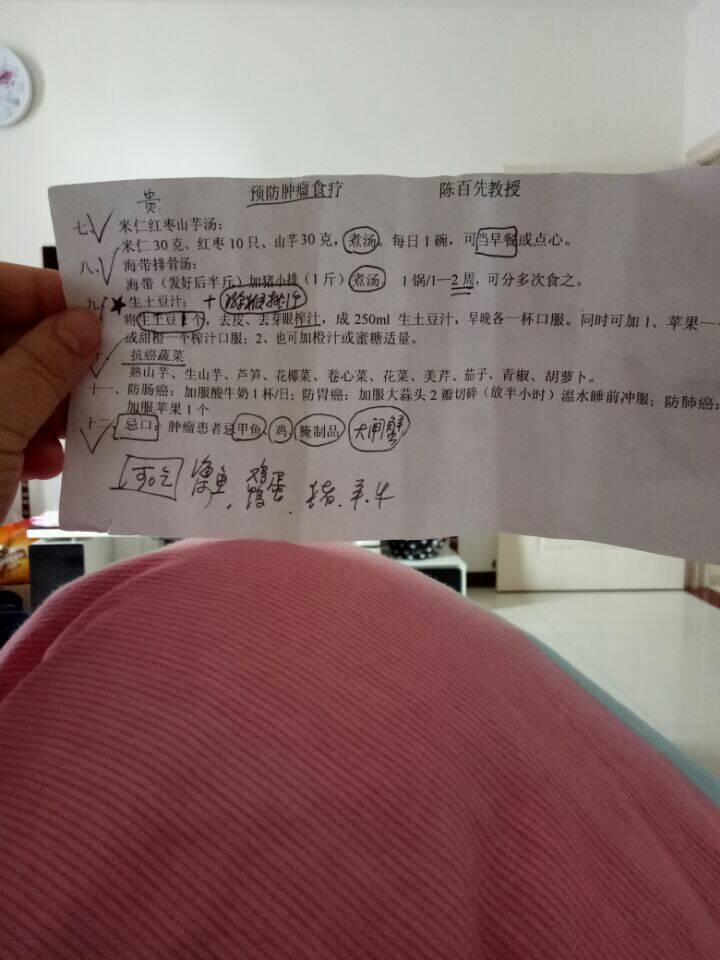 贵
预防肿瘤食疗 陈百先教授
七、米仁红枣山芋汤:
米仁 30 克、红枣 10 只、山芋 30 克,煮汤。每日 1 碗,可当早餐或点心。
八、海带排骨汤:
海带(发好后半斤)加猪小排(1 斤)煮汤, 1 锅/1—2 周,可分多次食之。
九、★生土豆汁: +
将生土豆 1 个,去皮、去芽眼榨汁,成 250ml 生土豆汁,早晚各一杯口服。同时可加 1、苹果一
或甜橙一个榨汁口服;2、也可加橙汁或蜜糖适量。
十、抗癌蔬菜
熟山芋、生山芋、芦笋、花椰菜、卷心菜、花菜、美芹、茄子、青椒、胡萝卜。
十一、防肠癌:加服酸牛奶 1 杯/日;防胃癌:加服大蒜头 2 瓣切碎(放半小时)温水睡前冲服;防肺癌:
加服苹果 1 个
十二、忌口:肿瘤患者忌甲鱼、鸡、腌制品 大闸蟹
可吃 海鱼、鸡鸭蛋、猪、羊、牛